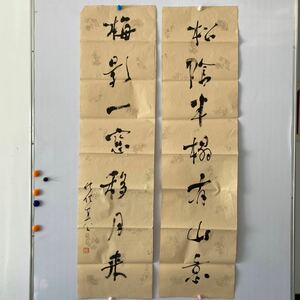 松陰半榻有山意
梅影一窓移月来